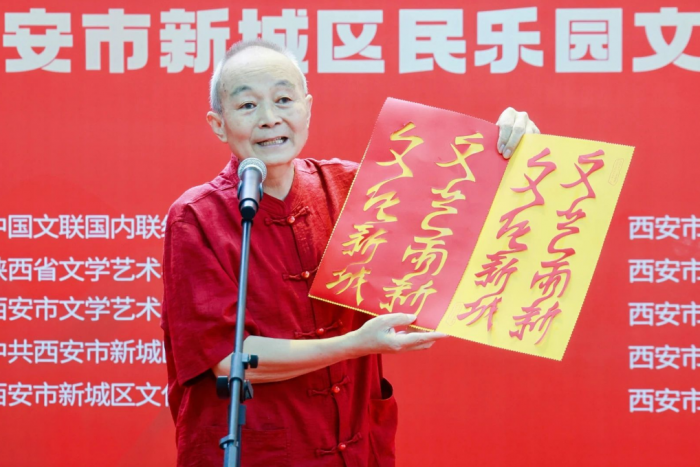 安市新城区民乐园文
中国文联国内联
陕西省文学艺术
西安市文学艺术
中共西安市新城
西安市新城区文化
文艺两新
文化新城
文艺两新
文化新城
西安市
西安市
西安市
西安市
西安市